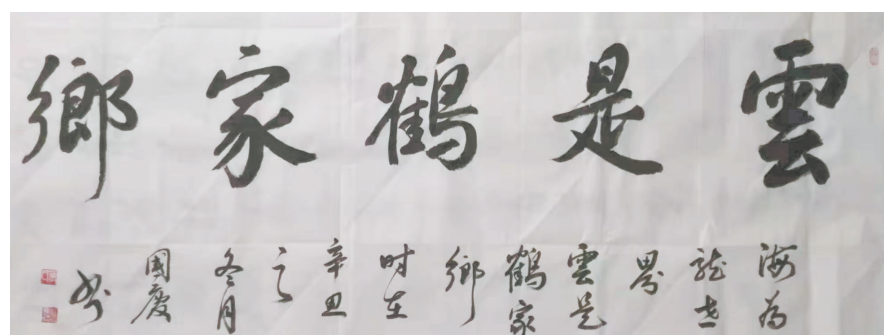 雲是鶴家鄉
海為
龍世
界
雲是
鶴家
鄉
时在
辛丑
之
冬月
國慶
书